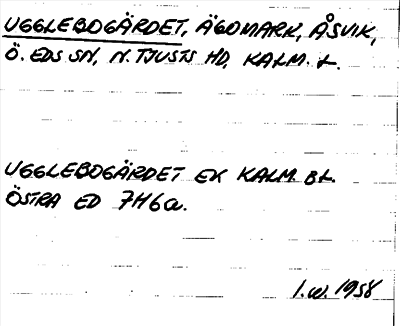 UGGLEBOGÄRDET, ÄGOMARK, ÅSVIK,
Ö. EDS SN, N. TJUSTS HD, KALM. L.
UGGLEBOGÄRDET EK KALM. BL.
ÖSTRA ED 7H6a.
I.W. 1958